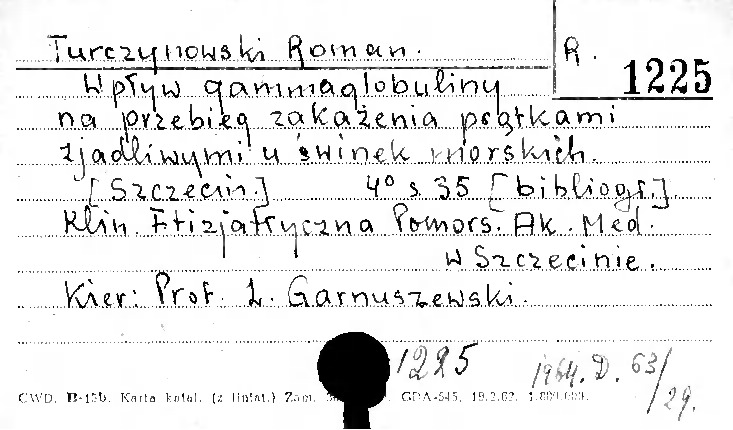 Turczynowski Roman.
R. 1225
Wpływ gammaglobuliny
na przebieg zakażenia prątkami
zjadliwymi u świnek morskich.
[Szczecin.] 4° s 35 [bibliogr.].
Klin. Ftizjatryczna Pomors. Ak. Med.
w Szczecinie.
Kier: Prof. L. Garnuszewski.
1225
1964. D. 63/29.
CWD. B-13b. Karta katal. (z liniat.) Zam. GDA-545. 19.2.62.